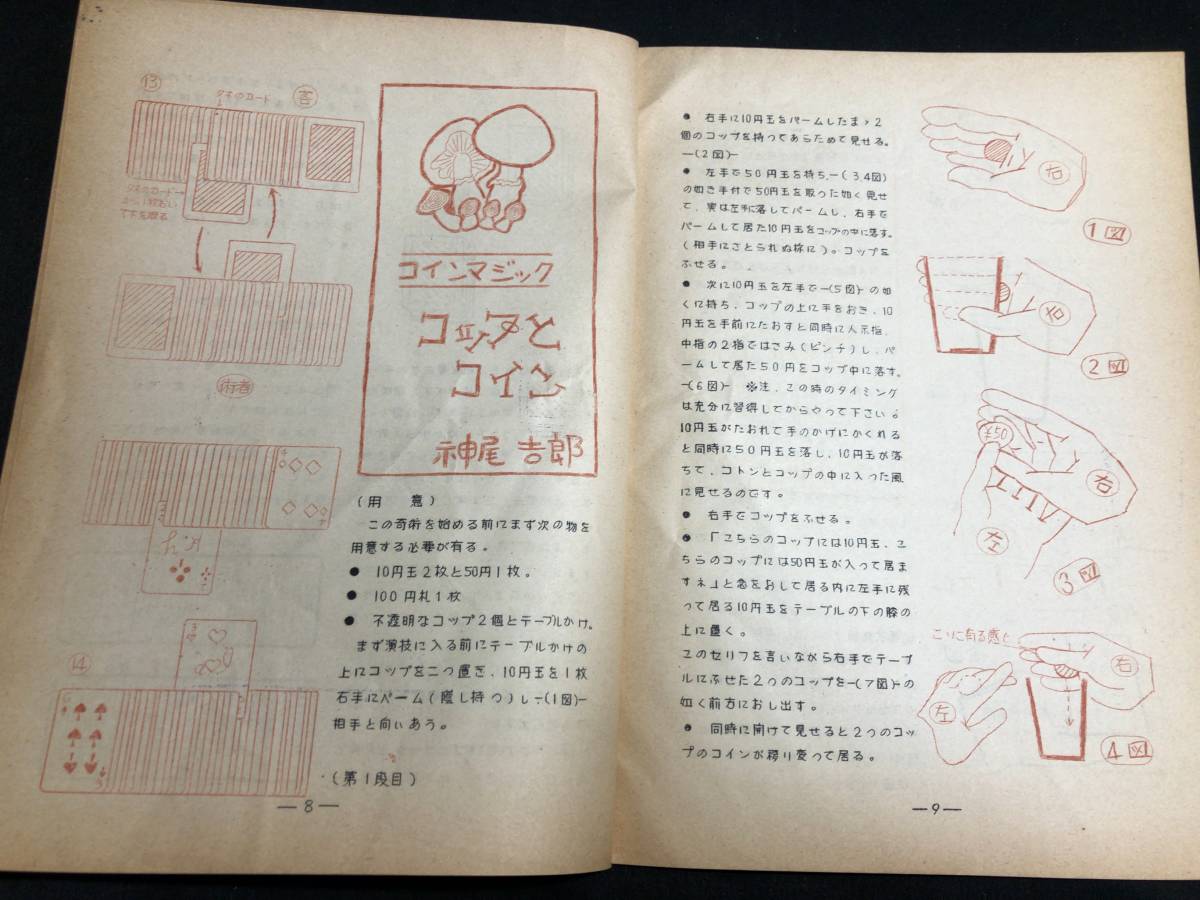 ⑬
タネのカード
客
タネのカード→
から1枚おい
て下を取る
術者
⑭
コインマジック
コップと
コイン
神尾吉郎
(用 意)
この奇術を始める前にまず次の物を
用意する必要が有る。
● 10円玉2枚と50円1枚。
● 100円札1枚
● 不透明なコップ2個とテーブルかけ。
まず演技に入る前にテーブルかけの
上にコップを二つ置き、10円玉を1枚
右手にパーム(隠し持つ)し-(1図)-
相手と向いあう。
(第1段目)
—8—
● 右手に10円玉をパームしたまゝ2
個のコップを持ってあらためて見せる。
-(2図)-
● 左手で50円玉を持ち-(3,4図)
の如き手付で50円玉を取った如く見せ
て、実は左手に落してパームし、右手で
パームして居た10円玉をコップの中に落す。
(相手にさとられぬ様に)。コップを
ふせる。
● 次に10円玉を左手で-(5図)-の如
くに持ち、コップの上に手をおき、10
円玉を手前にたおすと同時に人示指、
中指の2指ではさみ(ピンチ)し、パ
ームして居た50円をコップ中に落す。
-(6図)- ※注、この時のタイミング
は充分に習得してからやって下さい。
10円玉がたおれて手のかげにかくれる
と同時に50円玉を落し、10円玉が落
ちて、コトンとコップの中に入った風
に見せるのです。
● 右手でコップをふせる。
● 「こちらのコップには10円玉、こ
ちらのコップには50円玉が入って居ま
すネ」と念をおして居る内に左手に残
って居る10円玉をテーブルの下の膝の
上に置く。
このセリフを言いながら右手でテーブ
ルにふせた2つのコップを-(7図)-の
如く前方におし出す。
● 同時に開けて見せると2つのコッ
プのコインが移り変って居る。
—9—
右
1図
右
2図
¥50
右
左
3図
ここに有る感じ
右
左
4図